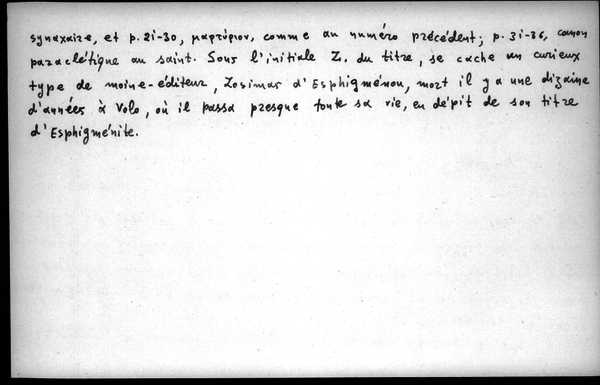 synaxaire, et p. 21-30, μαρτύριον, comme au numéro précédent; p. 31-36, canon
paraclétique au saint. Sous l'initiale Z. du titre, se cache un curieux
type de moine-éditeur, Zosimas d'Esphigménou, mort il y a une dizaine
d'années à Volo, où il passa presque toute sa vie, en dépit de son titre
d'Esphigménite.